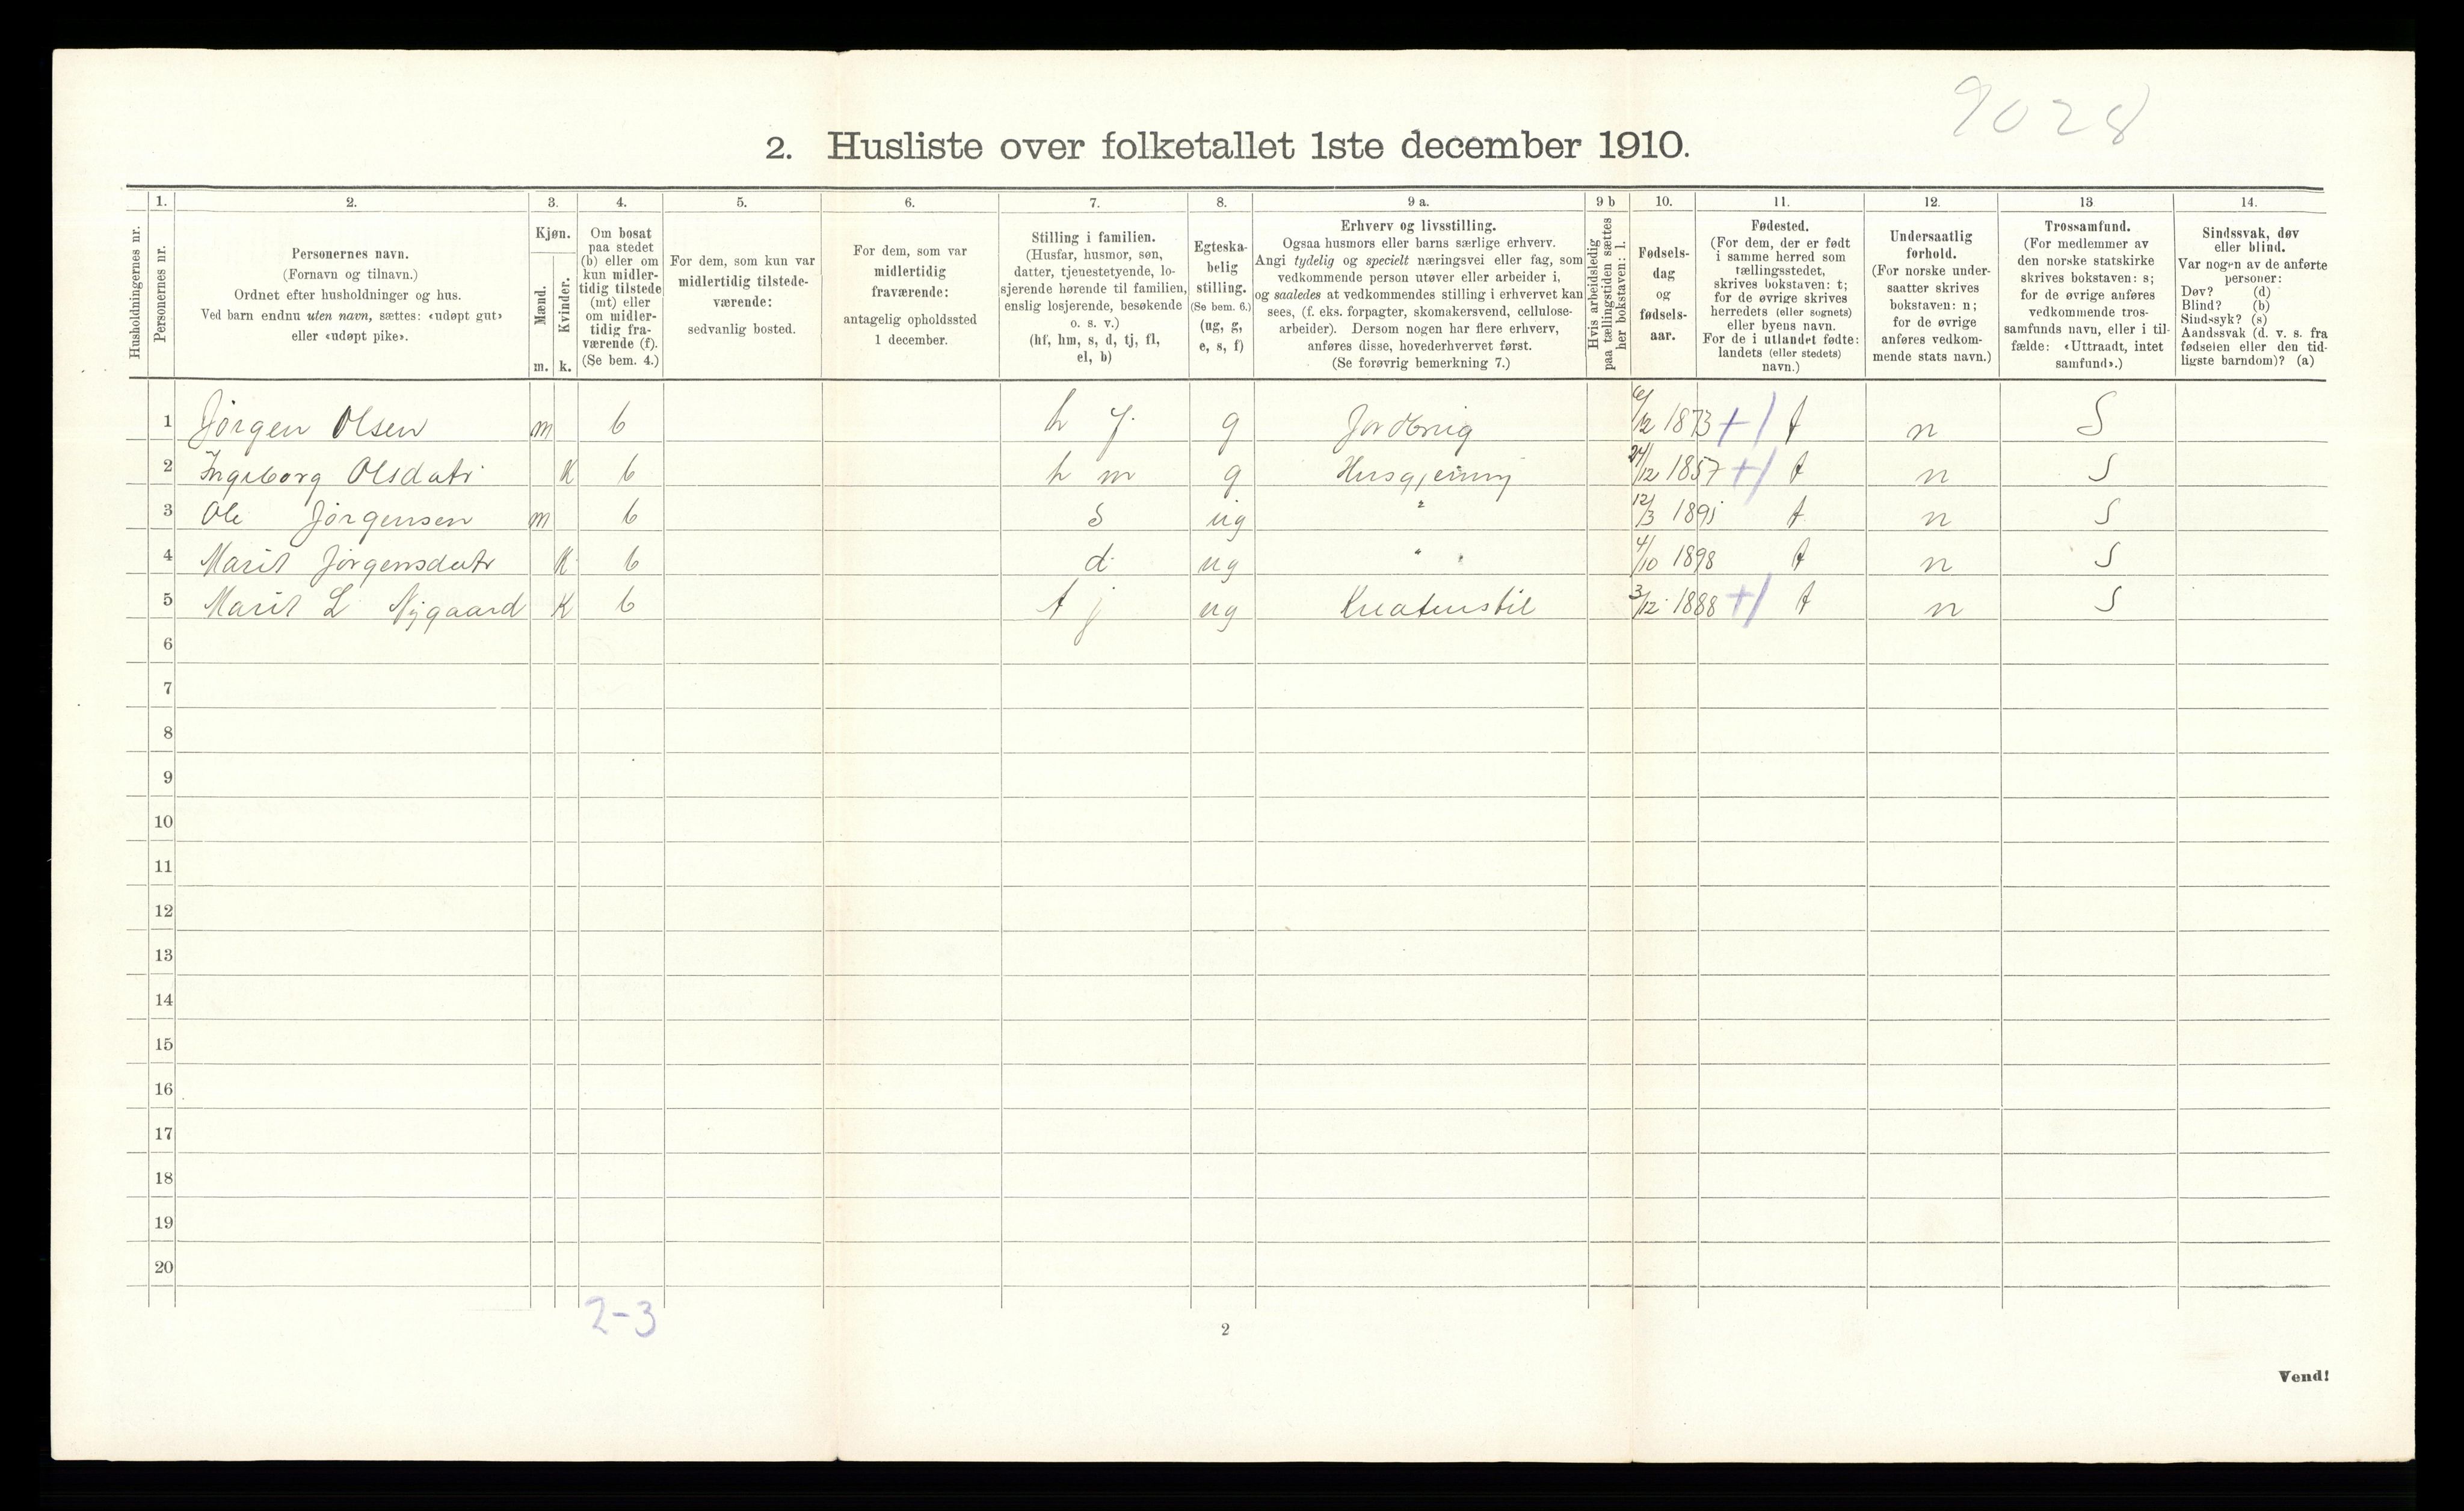 9028
2. Husliste over folketallet 1ste december 1910.
Husholdningernes nr.
1.
Personernes nr.
2.
Personernes navn.
(Fornavn og tilnavn.)
Ordnet efter husholdninger og hus.
Ved barn endnu uten navn, sættes: «udøpt gut»
eller «udøpt pike».
3.
Kjøn.
Mænd.
m.
Kvinder.
k.
4.
Om bosat
paa stedet
(b) eller om
kun midler-
tidig tilstede
(mt) eller
om midler-
tidig fra-
værende (f).
(Se bem. 4.)
5.
For dem, som kun var
midlertidig tilstede-
værende:
sedvanlig bosted.
6.
For dem, som var
midlertidig
fraværende:
antagelig opholdssted
1 december.
7.
Stilling i familien.
(Husfar, husmor, søn,
datter, tjenestetyende, lo-
sjerende hørende til familien,
enslig losjerende, besøkende
o. s. v.)
(hf, hm, s, d, tj, fl,
el, b)
8.
Egteska-
belig
stilling.
(Se bem. 6.)
(ug, g,
e, s, f)
9 a.
Erhverv og livsstilling.
Ogsaa husmors eller barns særlige erhverv.
Angi tydelig og specielt næringsvei eller fag, som
vedkommende person utøver eller arbeider i,
og saaledes at vedkommendes stilling i erhvervet kan
sees, (f. eks. forpagter, skomakersvend, cellulose-
arbeider). Dersom nogen har flere erhverv,
anføres disse, hovederhvervet først.
(Se forøvrig bemerkning 7.)
9 b
Hvis arbeidsledig
paa tællingstiden sættes
her bokstaven: l.
10.
Fødsels-
dag
og
fødsels-
aar.
11.
Fødested.
(For dem, der er født
i samme herred som
tællingsstedet,
skrives bokstaven: t;
for de øvrige skrives
herredets (eller sognets)
eller byens navn.
For de i utlandet fødte:
landets (eller stedets)
navn.)
12.
Undersaatlig
forhold.
(For norske under-
saatter skrives
bokstaven: n;
for de øvrige
anføres vedkom-
mende stats navn.)
13
Trossamfund.
(For medlemmer av
den norske statskirke
skrives bokstaven: s;
for de øvrige anføres
vedkommende tros-
samfunds navn, eller i til-
fælde: «Uttraadt, intet
samfund».)
14.
Sindssvak, døv
eller blind.
Var nogen av de anførte
personer:
Døv? (d)
Blind? (b)
Sindssyk? (s)
Aandssvak (d. v. s. fra
fødselen eller den tid-
ligste barndom)? (a)
1 Jørgen Olsen m b h f. g 6/12 1873 +1 t n S
2 Ingeborg Olsdatr K b h m g Husgjerning 24/12 1857 +1 t n S
3 Ole Jørgensen m b s ug " 12/3 t n S
4 Marit Jørgensdatr K b d ug " 4/10 1898 t n S
5 Marit L Nygaard K b t j ug Kreaturstel 3/12 1888 +1 t n S
6
7
8
9
10
11
12
13
14
15
16
17
18
19
20
2-3
2
Vend!